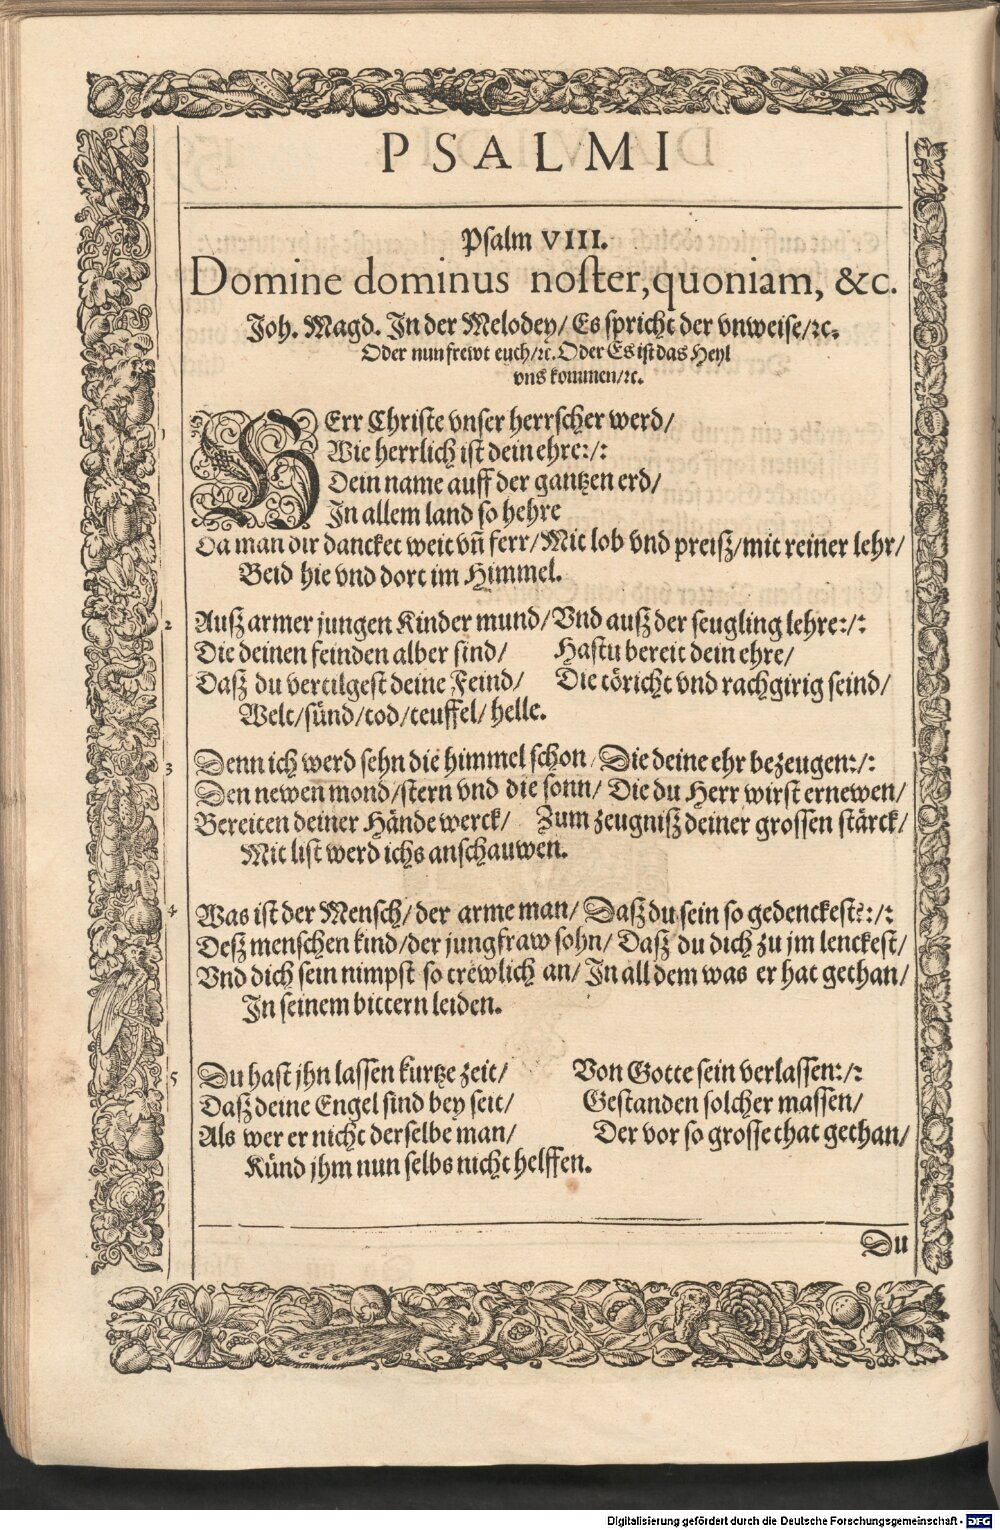 PSALMI
Psalm VIII.
Domine dominus noster, quoniam, &c.
Joh. Magd. In der Melodey/ Es spricht der vnweise/ꝛc.
Oder nun frewt euch/ꝛc. Oder Es ist das Heyl
vns kommen/ꝛc.
1 HErr Christe vnser herrscher werd/
Wie herrlich ist dein ehre:/:
Dein name auff der gantzen erd/
In allem land so hehre
Da man dir dancket weit vñ ferr/ Mit lob vnd preiß/ mit reiner lehr/
Beid hie vnd dort im Himmel.
2 Auß armer jungen Kinder mund/ Vnd auß der seugling lehre:/:
Die deinen feinden alber sind/ Hastu bereit dein ehre/
Daß du vertilgest deine Feind/ Die töricht vnd rachgirig seind/
Welt/ sünd/ tod/ teuffel/ helle.
3 Denn ich werd sehn die himmel schon/ Die deine ehr bezeugen:/:
Den newen mond/ stern vnd die sonn/ Die du Herr wirst ernewen/
Bereiten deiner Hände werck/ Zum zeugniß deiner grossen stärck/
Mit list werd ichs anschauwen.
4 Was ist der Mensch/ der arme man/ Daß du sein so gedenckest?:/:
Deß menschen kind/ der jungfraw sohn/ Daß du dich zu jm lenckest/
Vnd dich sein nimpst so trewlich an/ In all dem was er hat gethan/
In seinem bittern leiden.
5 Du hast jhn lassen kurtze zeit/ Von Gotte sein verlassen:/:
Daß deine Engel sind bey seit/ Gestanden solcher massen/
Als wer er nicht derselbe man/ Der vor so grosse that gethan/
Künd jhm nun selbs nicht helffen.
Du
Digitalisierung gefördert durch die Deutsche Forschungsgemeinschaft - DFG